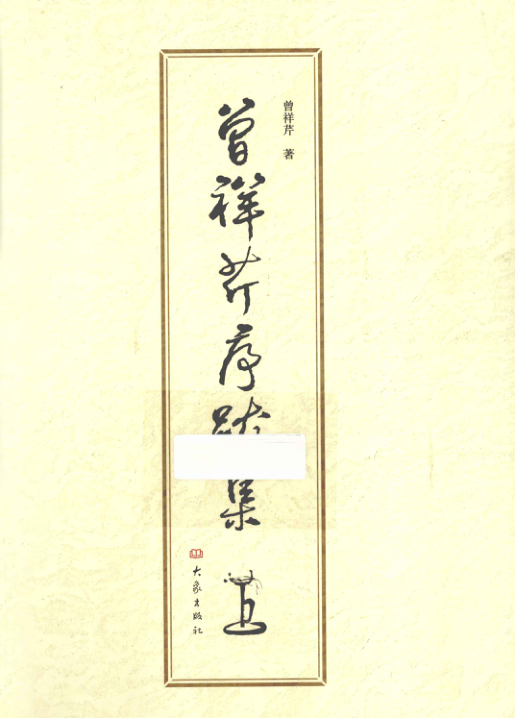 曾祥芹 著
曾祥芹序跋集
大象出版社